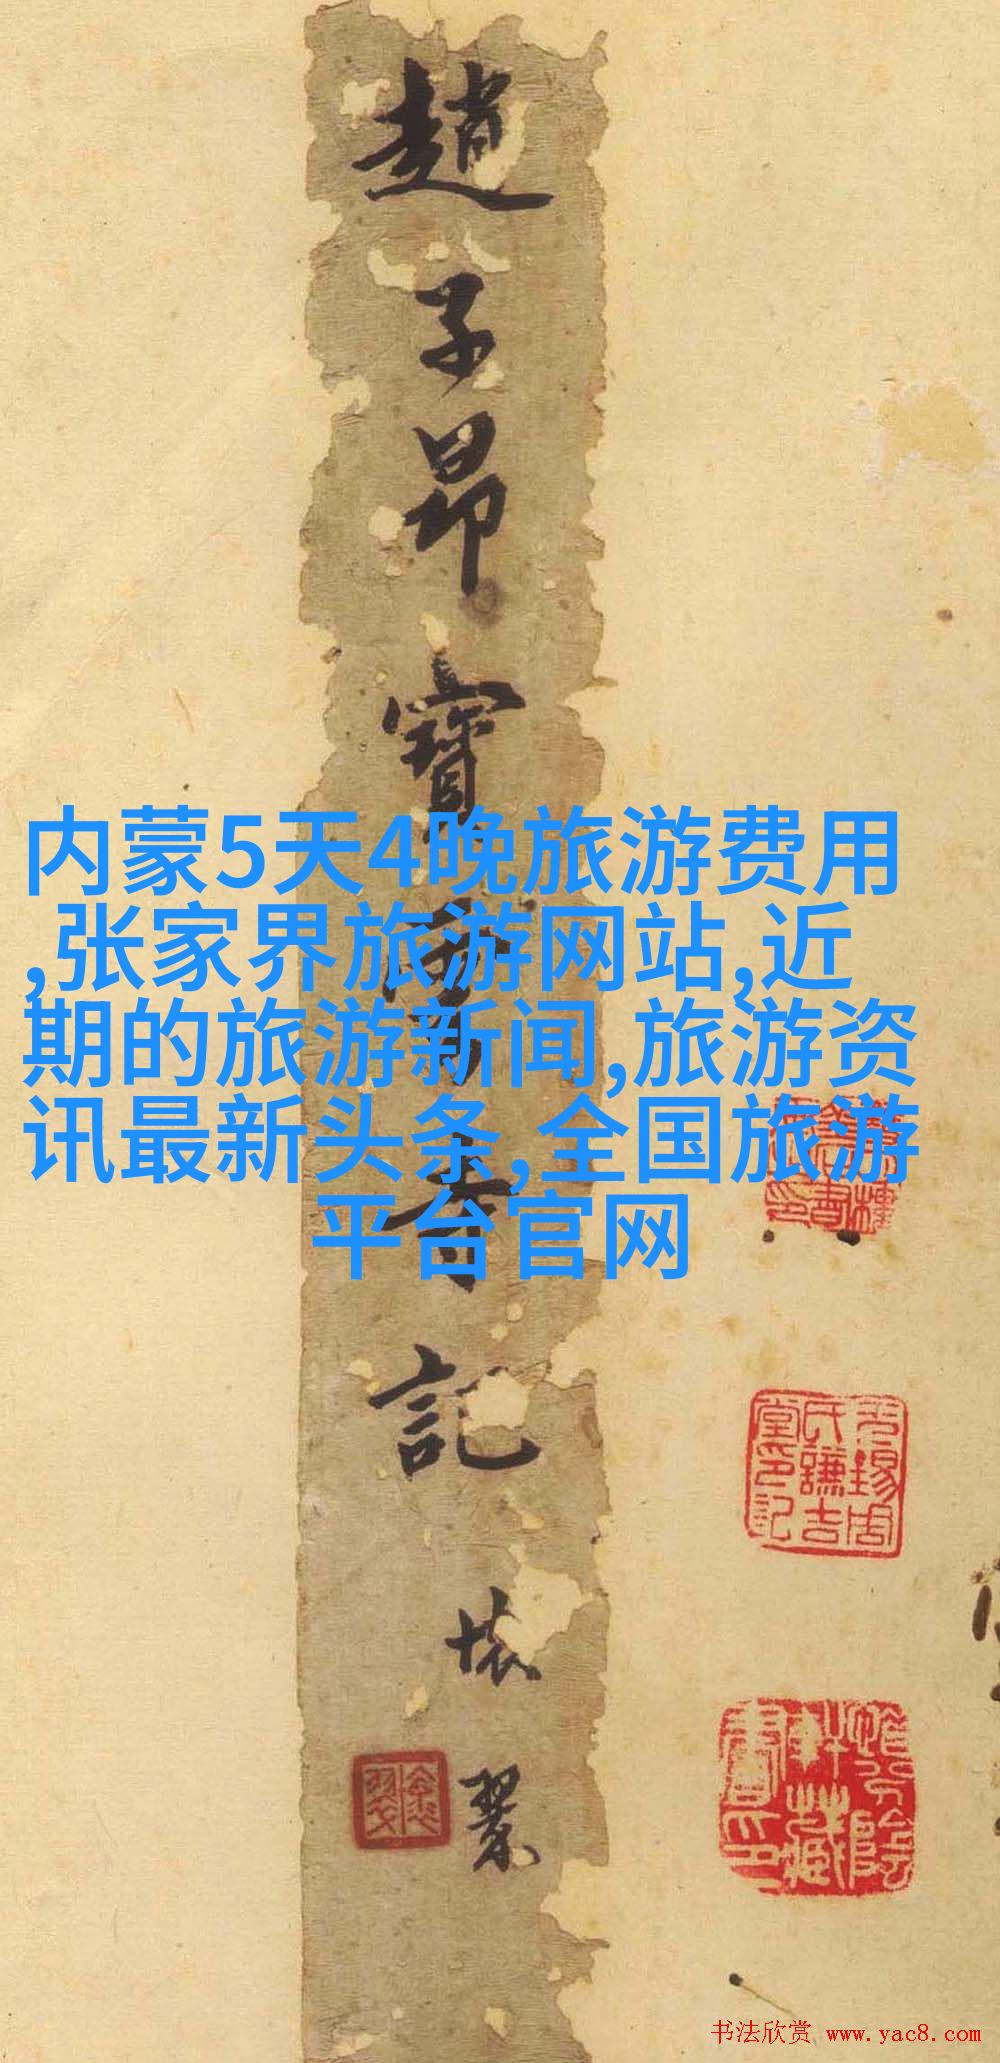 趙子昂寶雲寺記
内蒙5天4晚旅游费用
,张家界旅游网站,近
期的旅游新闻,旅游资
讯最新头条,全国旅游
平台官网
無錫周
氏謙吉
堂印記
书法欣赏 www.yac8.com